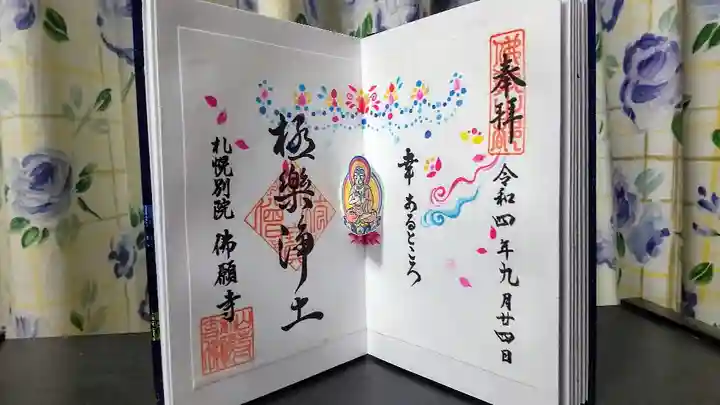 奉拝
令和四年九月廿四日
幸あるところ
極樂浄土
札幌別院
佛願寺